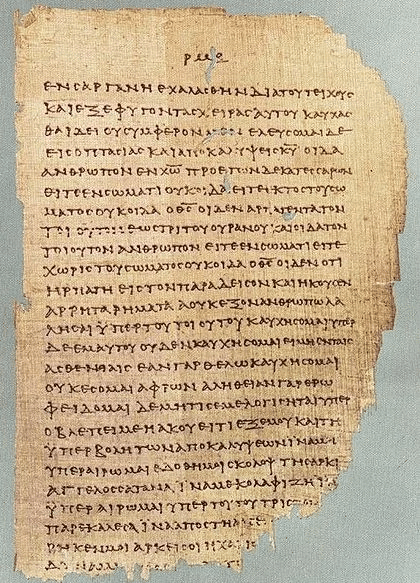 ΡΜΘ
ΕΝϹΑΡΓΑΝΗΕΧΑΛΑϹΘΗΝΔΙΑΤΟΥΤΕΙΧΟΥϹ
ΚΑΙΕΞΕΦΥΓΟΝΤΑϹΧΕΙΡΑϹΑΥΤΟΥΚΑΥΧΑϹ
ΘΑΙΔΕΙΟΥϹΥΜΦΕΡΟΝΜΕΝΕΛΕΥϹΟΜΑΙΔΕ
ΕΙϹΟΠΤΑϹΙΑϹΚΑΙΑΠΟΚΑΛΥΨΕΙϹΚ̅Υ̅ΟΙΔΑ
ΑΝΘΡΩΠΟΝΕΝΧ̅Ω̅ΠΡΟΕΤΩΝΔΕΚΑΤΕϹϹΑΡΩΝ
ΕΙΤΕΕΝϹΩΜΑΤΙΟΥΚΟΙΔΑΕΙΤΕΕΚΤΟϹΤΟΥϹΩ
ΜΑΤΟϹΟΥΚΟΙΔΑΟΘ̅Ϲ̅ΟΙΔΕΝΑΡΠΑΓΕΝΤΑΤΟΝ
ΤΟΙΟΥΤΟΝΕΩϹΤΡΙΤΟΥΟΥΡΑΝΟΥΚΑΙΟΙΔΑΤΟΝ
ΤΟΙΟΥΤΟΝΑΝΘΡΩΠΟΝΕΙΤΕΕΝϹΩΜΑΤΙΕΙΤΕ
ΧΩΡΙϹΤΟΥϹΩΜΑΤΟϹΟΥΚΟΙΔΑΟΘ̅Ϲ̅ΟΙΔΕΝΟΤΙ
ΗΡΠΑΓΗΕΙϹΤΟΝΠΑΡΑΔΕΙϹΟΝΚΑΙΗΚΟΥϹΕΝ
ΑΡΡΗΤΑΡΗΜΑΤΑΑΟΥΚΕΞΟΝΑΝΘΡΩΠΩΛΑ
ΛΗϹΑΙΫΠΕΡΤΟΥΤΟΙΟΥΤΟΥΚΑΥΧΗϹΟΜΑΙΥΠΕΡ
ΔΕΕΜΑΥΤΟΥΟΥΔΕΝΚΑΥΧΗϹΟΜΑΙΕΙΜΗΕΝΤΑΙϹ
ΑϹΘΕΝΕΙΑΙϹΕΑΝΓΑΡΘΕΛΩΚΑΥΧΗϹΟΜΑΙ
ΟΥΚΕϹΟΜΑΙΑΦΡΩΝΑΛΗΘΕΙΑΝΓΑΡΕΡΩ
ΦΕΙΔΟΜΑΙΔΕΜΗΤΙϹΕΜΕΛΟΓΙϹΗΤΑΙΥΠΕΡ
ΟΒΛΕΠΕΙΜΕΗΑΚΟΥΕΙΤΙΕΞΕΜΟΥΚΑΙΤΗ
ΫΠΕΡΒΟΛΗΤΩΝΑΠΟΚΑΛΥΨΕΩΝΪΝΑΜΗ
ΥΠΕΡΑΙΡΩΜΑΙΕΔΟΘΗΜΟΙϹΚΟΛΟΨΤΗϹΑΡΚΙ
ΑΓΓΕΛΟϹϹΑΤΑΝΑΪΝΑΜΕΚΟΛΑΦΙΖΗΪΝΑ
ΫΠΕΡΑΙΡΩΜΑΙΥΠΕΡΤΟΥΤΟΥΤΡΙϹ
ΠΑΡΕΚΑΛΕϹΑΪΝΑΑΠΟϹΤΗ
ΡΗΚΕΝΜΟΙΑΡΚΕΙϹΟΙΗΧΑΡΙϹ
ΔΥΝΑΜΙϹ